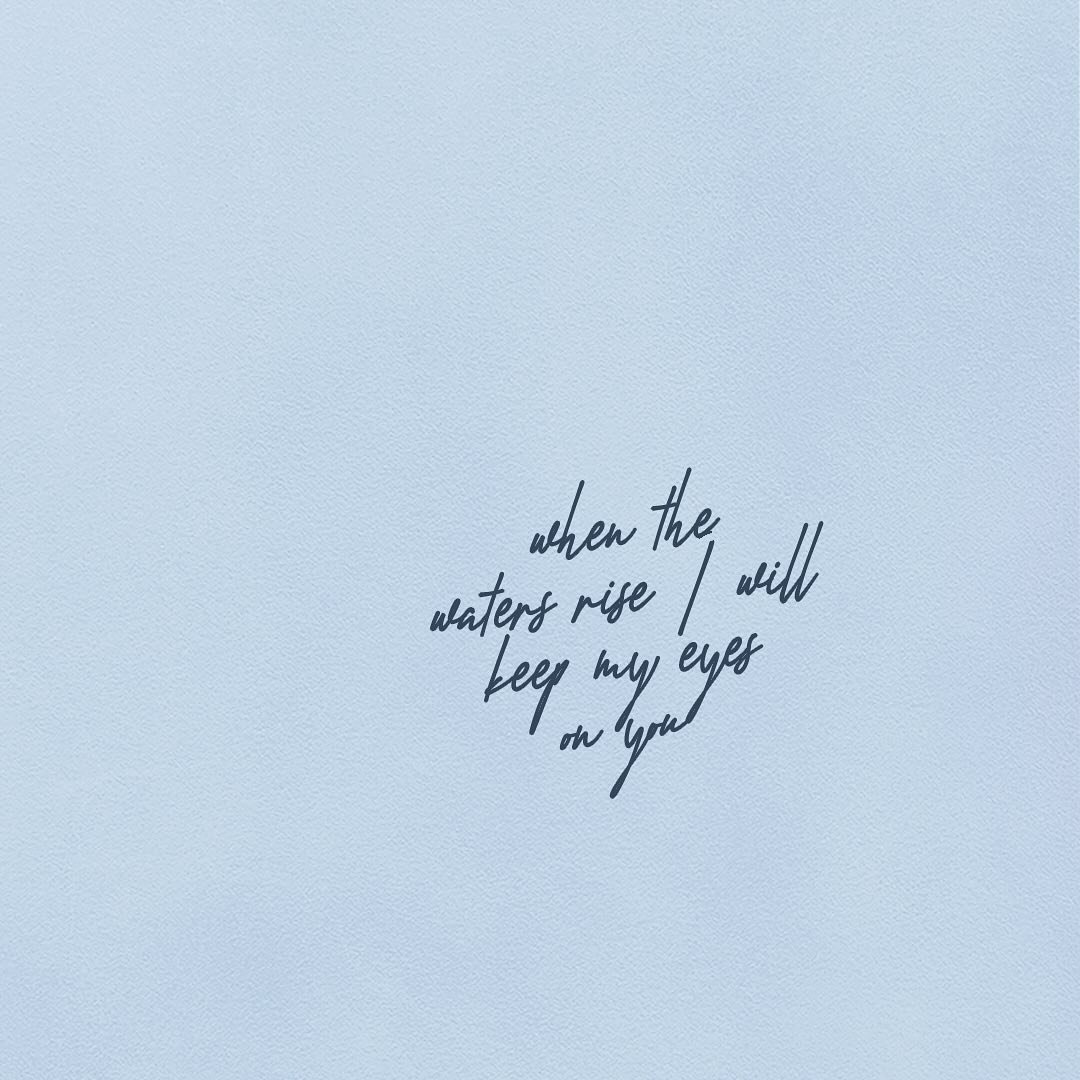 when the
waters rise I will
keep my eyes
on you